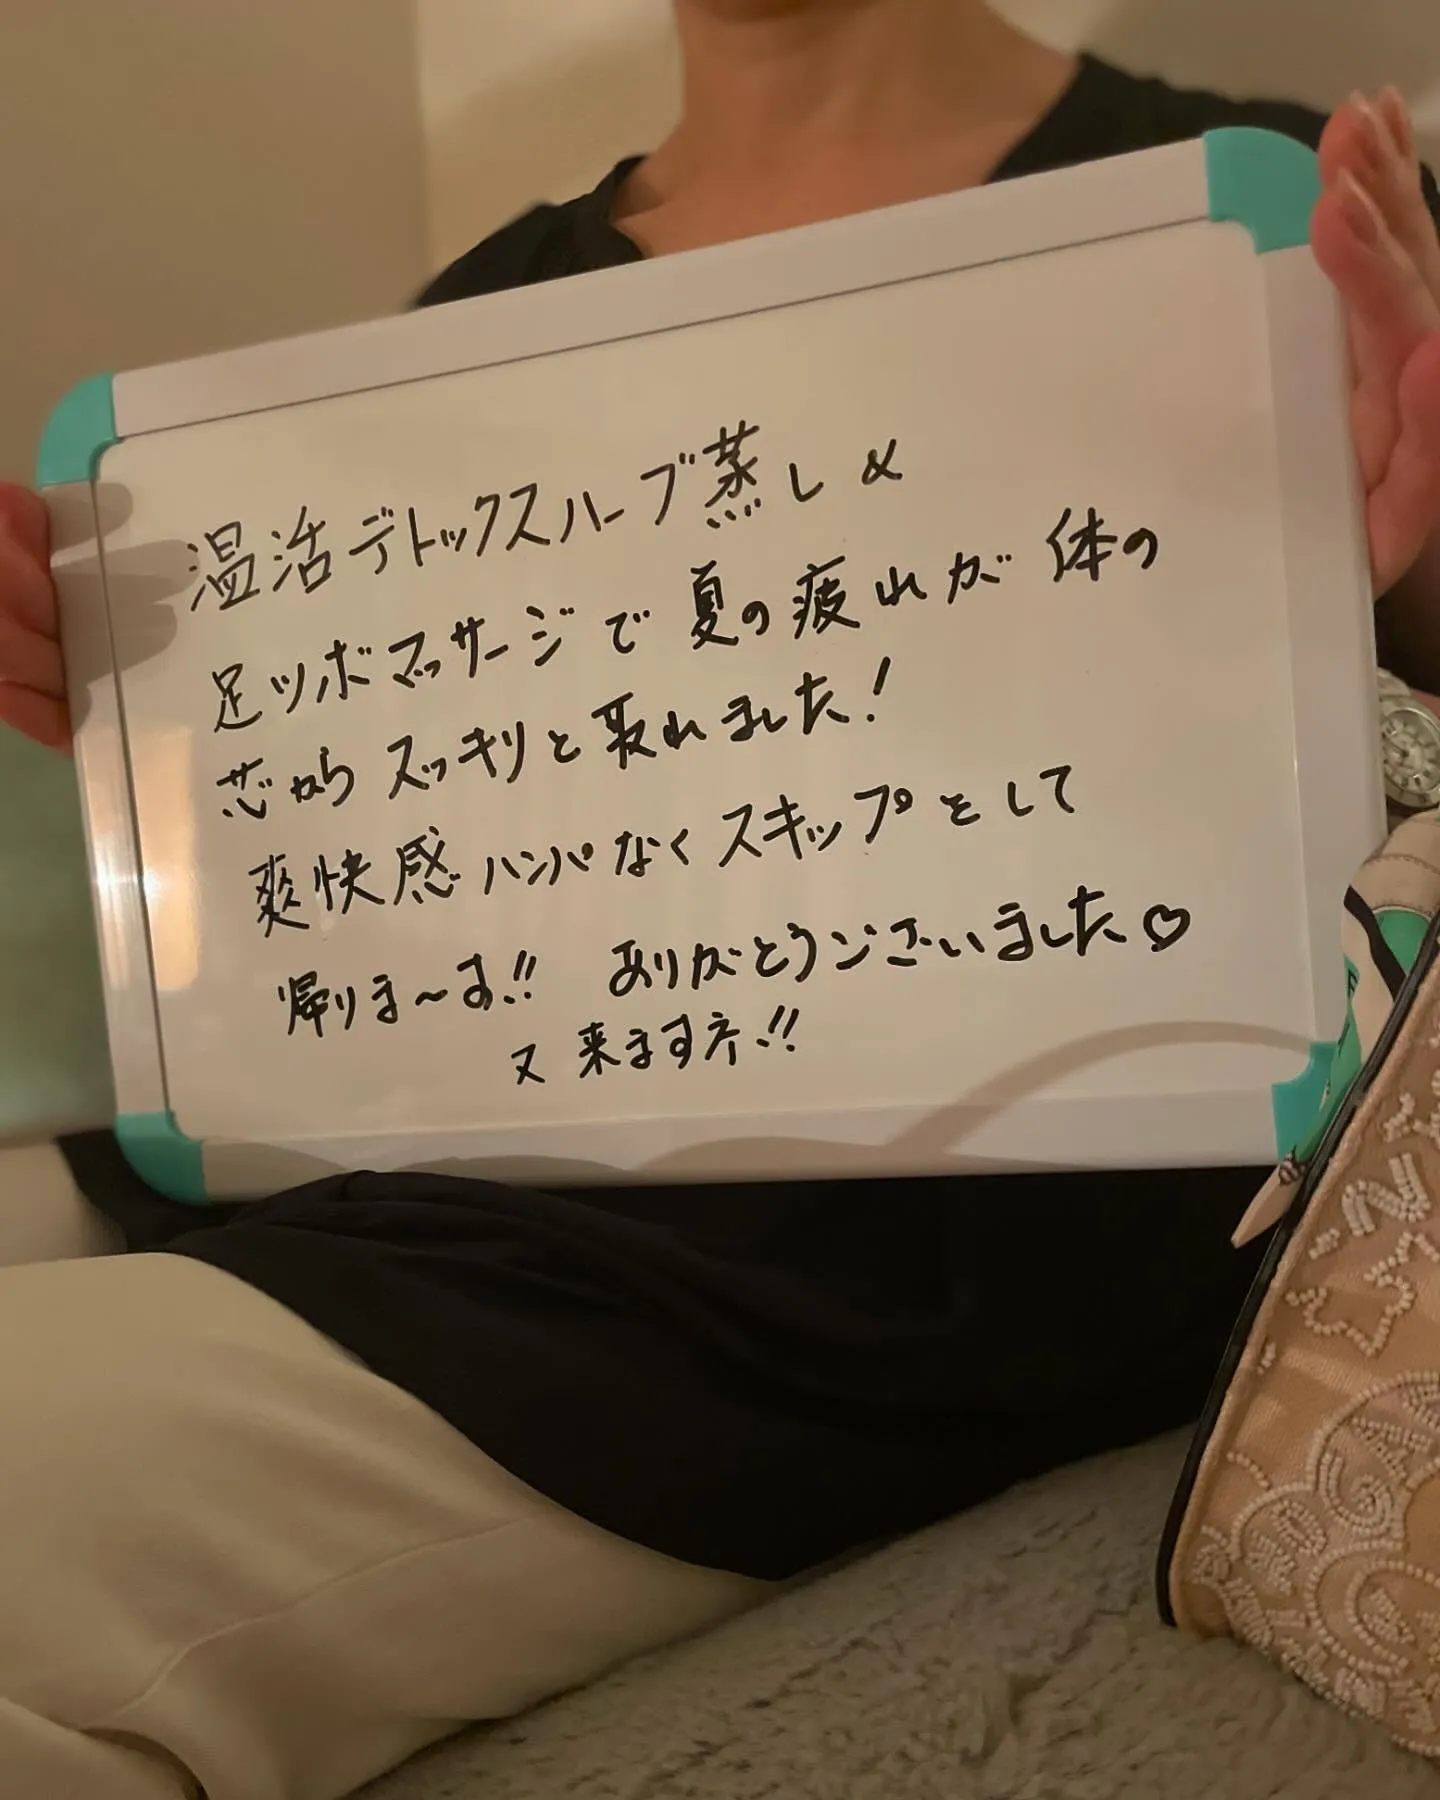 温活デトックスハーブ蒸し &
足ツボマッサージで夏の疲れが体の
芯からスッキリと取れました!
爽快感ハンパなくスキップとして
帰りま〜す!! ありがとうございました♡
又来ますネ!!